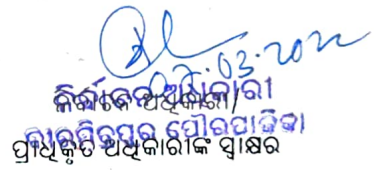 07.03.2022
ନିର୍ବାଚନ ଅଧିକାରୀ
ନିର୍ବାଚନ ଅଧିକାରୀ/
ପୌରପାଳିକା
ପ୍ରାଧିକୃତ ଅଧିକାରୀଙ୍କ ସ୍ୱାକ୍ଷର